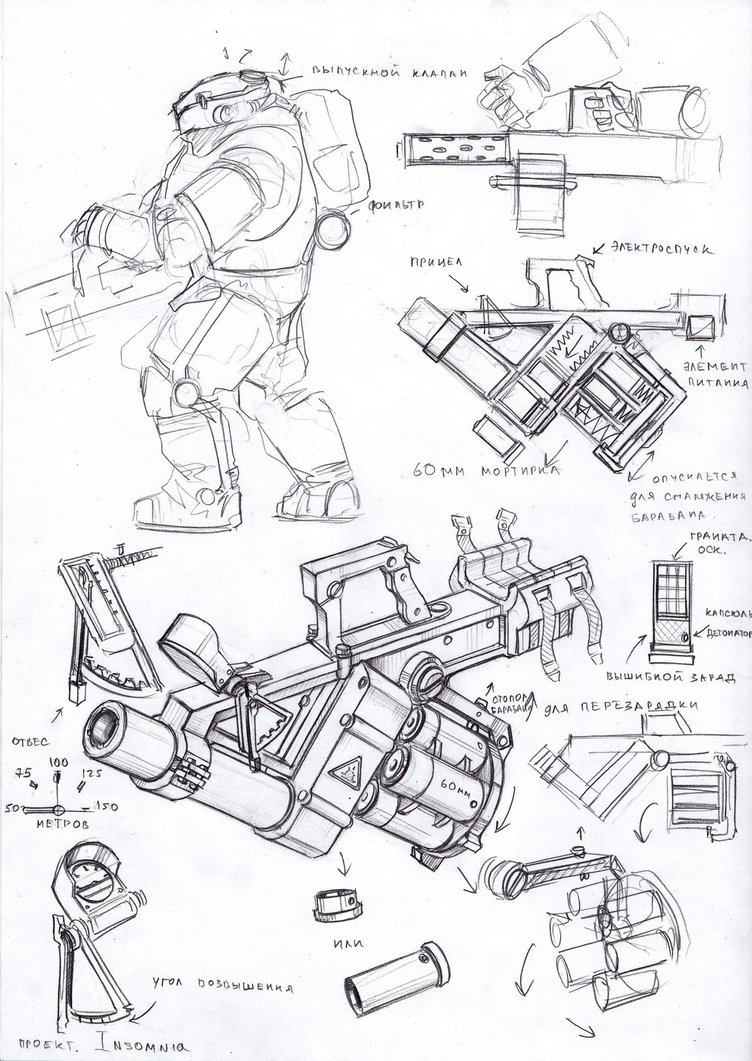 ВЫПУСКНОЙ КЛАПАН
ФИЛЬТР
ЭЛЕКТРОСПУСК
ПРИЦЕЛ
ЭЛЕМЕНТ
ПИТАНИЯ
60 ММ МОРТИРКА
ОПУСКАЕТСЯ
ДЛЯ СНАРЯЖЕНИЯ
БАРАБАНА.
ГРАНАТА.
ОСК.
КАПСЮЛЬ
ДЕТОНАТОР
ВЫШИБНОЙ ЗАРЯД
СТОПОР
БАРАБАНА
ДЛЯ ПЕРЕЗАРЯДКИ
ОТВЕС
75 100 125
50 150
МЕТРОВ
60мм
ИЛИ
УГОЛ ВОЗВЫШЕНИЯ
ПРОЕКТ. INSOMNIA